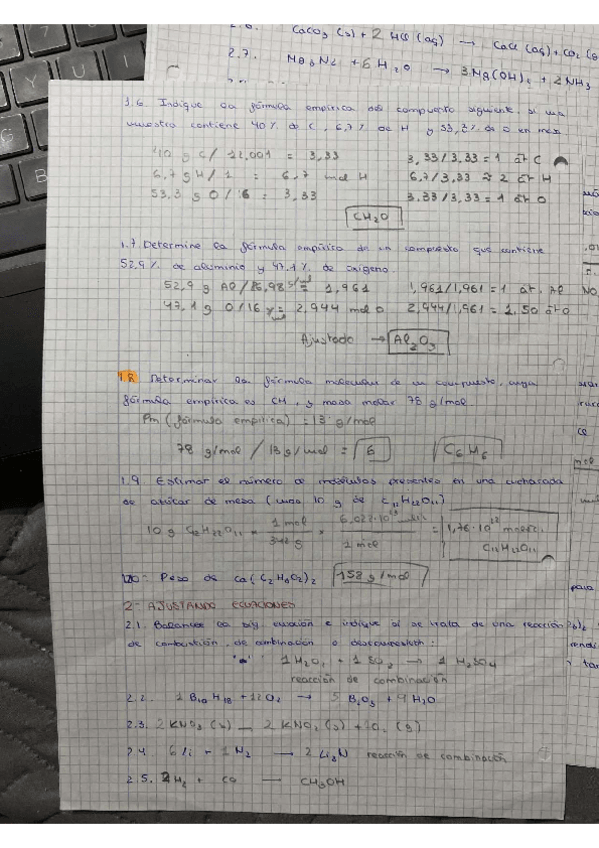 CaCO3 (s) + 2 HCl (aq) → CaCl (aq) + CO2 (g
2.7. Mg3N2 + 6 H2O → 3 Mg(OH)2 + 2NH3
1.6 Indique la fórmula empírica del compuesto siguiente, si una
muestra contiene 40% de C, 6,7% de H y 53,3% de O en masa.
40 g C / 12,001 = 3,33 3,33/3,33 = 1 át C
6,7 g H / 1 = 6,7 mol H 6,7/3,33 ≈ 2 át H
53,3 g O / 16 = 3,33 3.33/3,33 = 1 át O
CH2O
1.7. Determine la fórmula empírica de un compuesto que contiene
52,9% de aluminio y 47,1% de oxígeno.
52,9 g Al / 26,98 g/mol = 1,961 1,961/1,961 = 1 át. Al
47,1 g O/16 = 2,944 mol O 2,944/1,961 = 1,50 át O
Ajustado → Al2O3
1.8 Determinar la fórmula molecular de un compuesto, cuya
fórmula empírica es CH, y masa molar 78 g/mol
Pm (fórmula empírica) = 13 g/mol
78 g/mol / 13 g/mol = 6 C6H6
1.9. Estimar el número de moléculas presentes en una cucharada
de azúcar de mesa (unos 10 g de C11H22O11)
10 g C12H22O11 × 1 mol / 342 g × 6,022·10²³ / 1 mol = 1,76·10²²
C12H22O11
1.10- Peso de Ca(C2H3O2)2 158 g/mol
2- AJUSTANDO ECUACIONES
2.1. Balancea la sig. ecuación e indique si se trata de una reacción
de combustión, de combinación o
1 H2O + 1 SO3 → 1 H2SO4
reacción de combinación
2.2. 1 B10H18 + 12 O2 → 5 B2O3 + 9 H2O
2.3. 2 KNO3 (s) — 2 KNO2 (s) + 1O2 (g)
2.4. 6 Li + 1 N2 → 2 Li3N reacción de combinación
2.5. 2H2 + CO — CH3OH